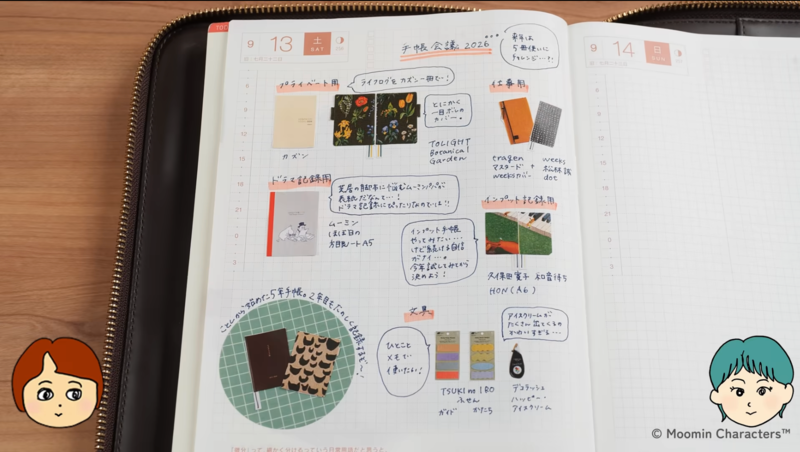 9
13
土
SAT
手帳会議 2026
来年は
5冊使いに
チャレンジ…!
9
14
日
SUN
プライベート用
ライフログを カズン一冊で…!
とにかく
一目ぼれの
カバー。
カズン
TOLIGHT
Botanical
Garden
仕事用
マスタード
weeksカバー
+
weeks
松林 誠
dot
ドラマ記録用
芝居の脚本に悩むムーミンパパが
表紙だなんて…!
ドラマ記録にぴったりなのでは!?
ムーミン
ほぼ日の
方眼ノートA5
インプット記録用
インプット手帳
やってみたい…
けど続ける自信
がナイ…。
今年試してみてから
決めよう!
久保田寛子 和音待ち
HON(A6)
ことしから始めた5年手帳。2年目もたのしく記録するぞ〜!
文具
ひとこと
メモで
使いたい!
TSUKI no IRO
ふせん
ガイド かたち
アイスクリームが
たくさん出てくるの
かわいすぎる…
デコラッシュ
ハッピー・
アイスクリーム
© Moomin Characters™